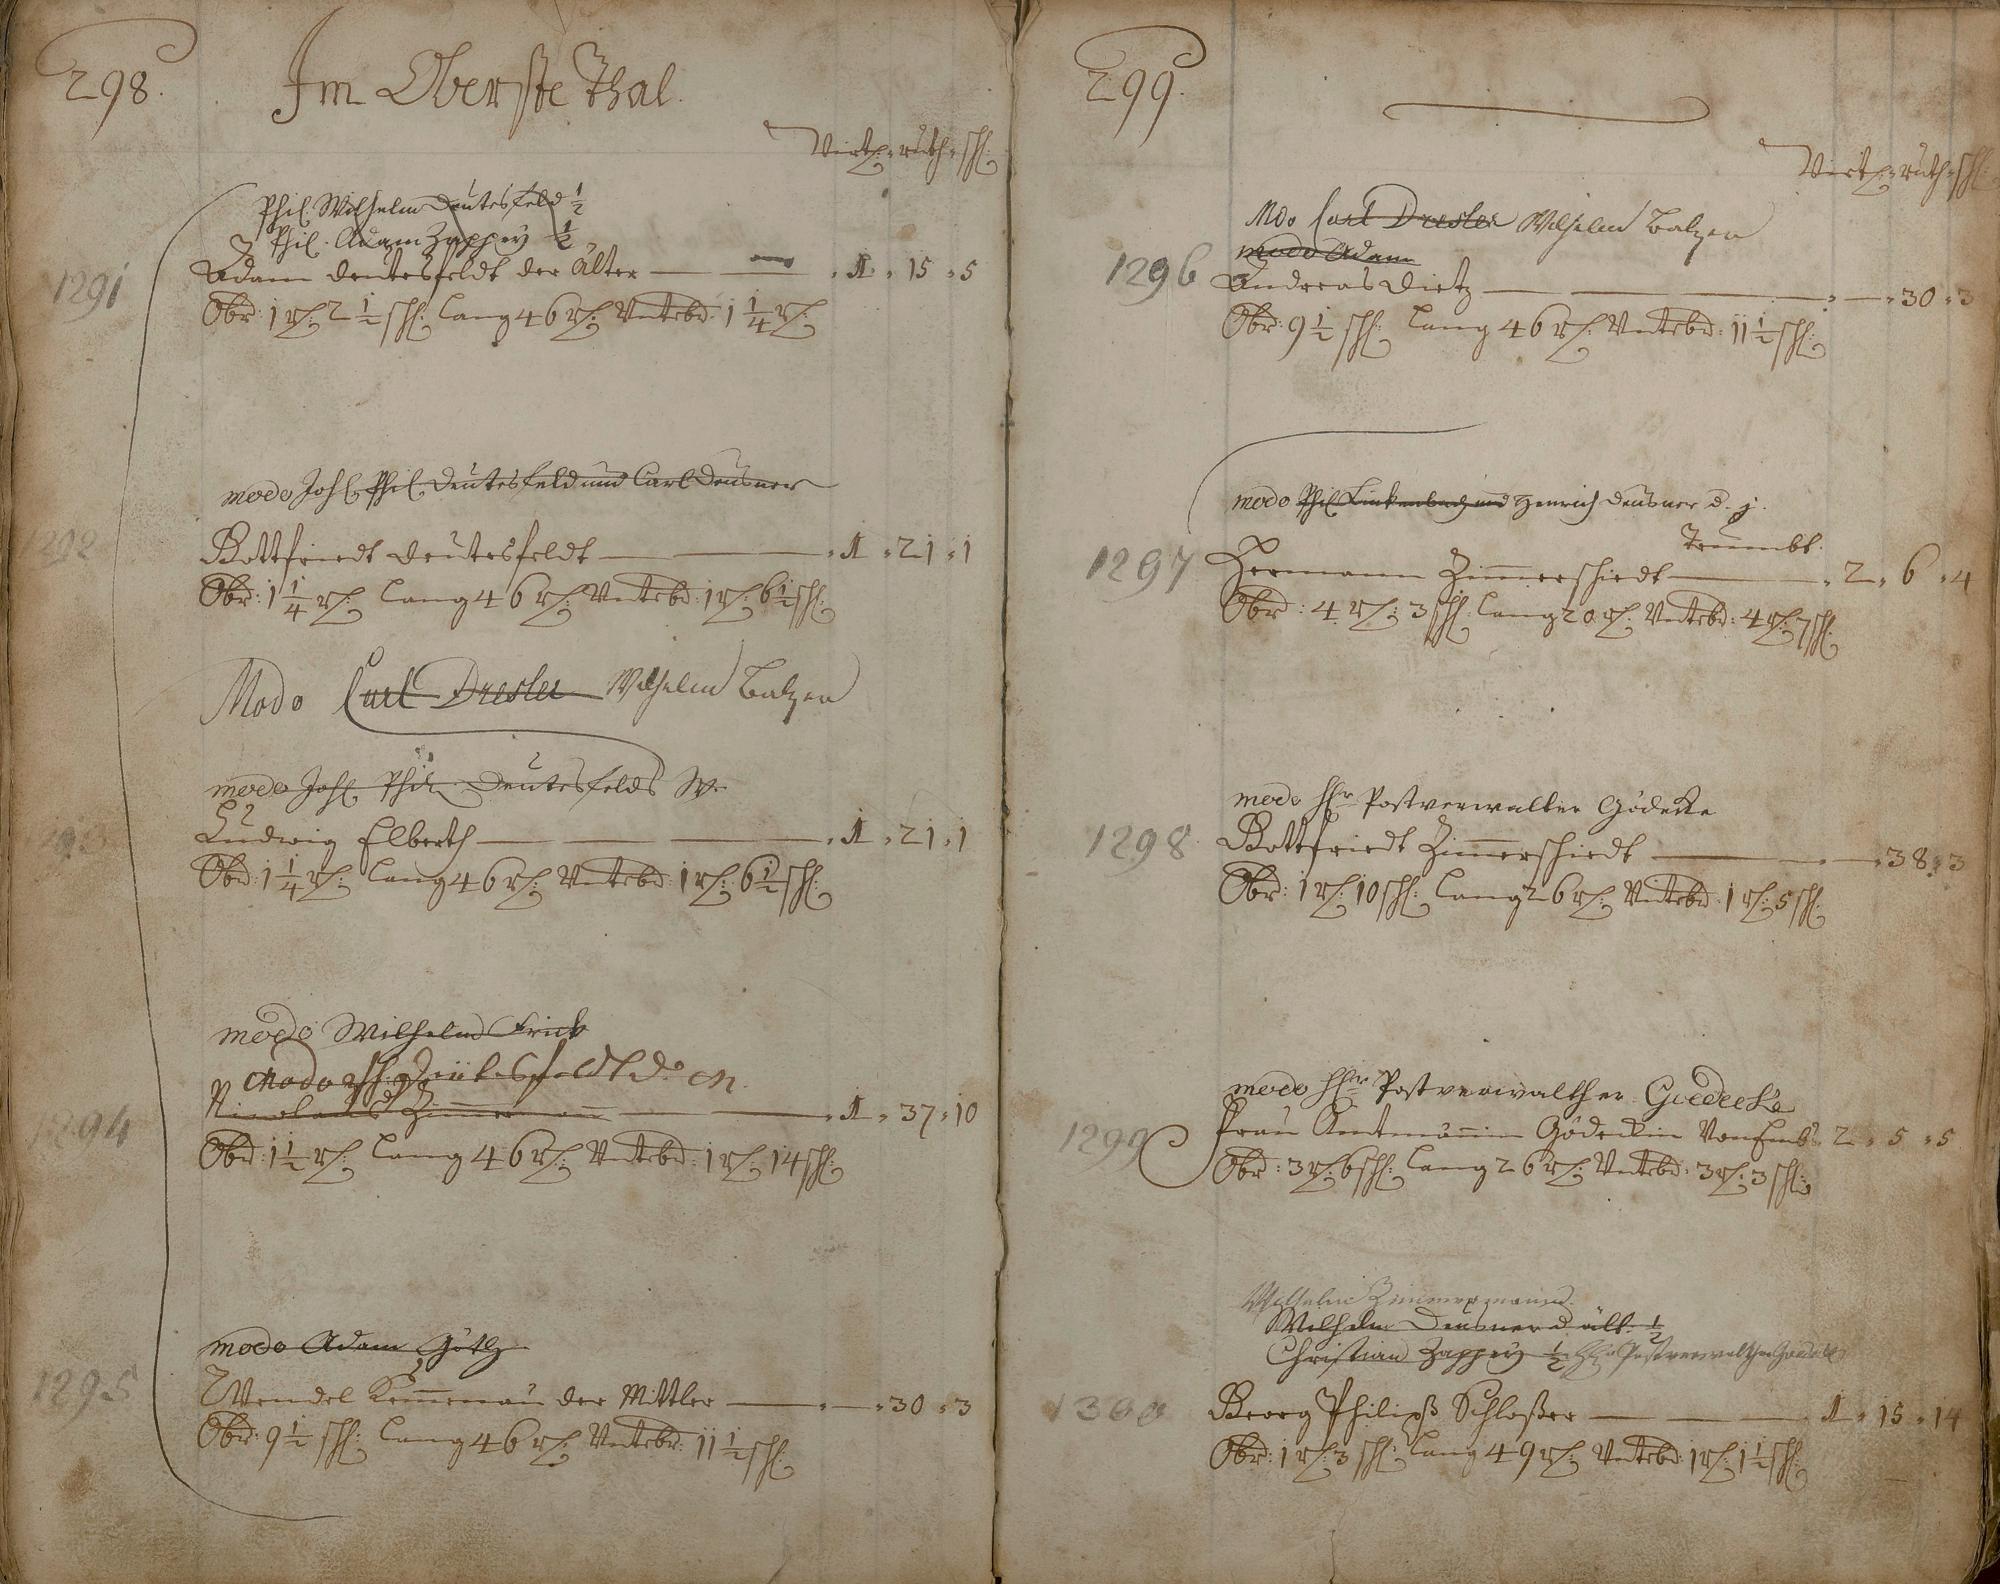 298.
Im Oberste Thal.
Virtl: ruth: sch:
Phil. Wilhelm Deutesfeld ½
Phil. Adam Zappey ½
1291 Adam Deutesfeldt der Älter — — 1. 15. 5
Obr: 1 r: 2 ½ sch: lang 46 r: Untebd: 1 ¼ r:
modo Joh. Phil. Deutesfeld und Carl Deusner
1292 Gottfriedt Deutesfeldt — — 1. 21. 1
Obr: 1 ¼ r: lang 46 r: Untebd: 1 r: 6 ½ sch:
Modo Carl Dresler Wilhelm Balzer
modo Joh. Phil. Deutesfelds W.
1293 Ludwig Elberth — — 1. 21. 1
Obr: 1 ¼ r: lang 46 r: Untebd: 1 r: 6 ½ sch:
modo Wilhelm Frick
modo Deutesfeldt d. m.
1294 Nicolaus Zimmermann — — 1. 37. 10
Obr: 1 ½ r: lang 46 r: Untebd: 1 r: 14 sch:
modo Adam Götz
1295 Wendel Kem̅enau der Mittler — — 30. 3
Obr: 9 ½ sch: lang 46 r: Untebd: 11 ½ sch:
299.
Virtl: ruth: sch:
Mdo Carl Dresler Wilhelm Balzer
modo Adam
1296 Andreas Dietz — — 30. 3
Obr: 9 ½ sch: lang 46 r: Untebd: 11 ½ sch:
modo Phil. Linkenbach und Henrich Deusner d. j.
Trumbt.
1297 Hermann Zim̅erschiedt — 2. 6. 4
Obr: 4 r: 3 sch: lang 20 r: Untebd: 4 r: 7 sch:
modo Hr. Postverwalter Gödecke
1298 Gottfriedt Zim̅erschiedt — — 38. 3
Obr: 1 r: 10 sch: lang 26 r: Untebd: 1 r: 5 sch:
modo Hr. Postverwalther Goedecke
1299 Frau Amtmän̅in Gödeckin von Embs. 2. 5. 5
Obr: 3 r: 6 sch: lang 26 r: Untebd: 3 r: 3 sch:
Wilhelm Zimmermann
Wilhelm Deusner d. ält. ½
Christian Zappey ½ Hr. Postverwalther Goedecke
1300 Georg Philipß Schloßer — — 1. 15. 14
Obr: 1 r: 3 sch: lang 49 r: Untebd: 1 r: 1 ½ sch: